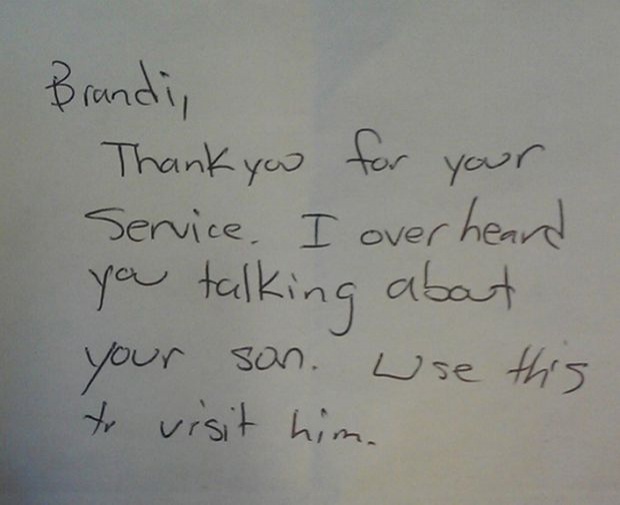 Brandi,
Thank you for your
Service. I overheard
you talking about
your son. Use this
to visit him.